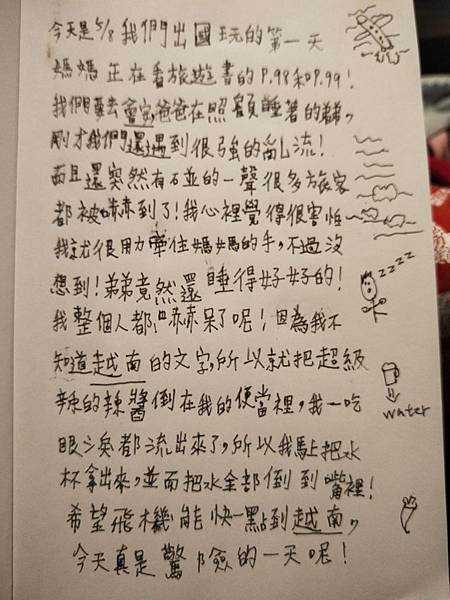 今天是5/8我們出國玩的第一天
媽媽正在看旅遊書的P.98和P.99!
我們要去會安,爸爸在照顧睡著的弟弟,
剛才我們還遇到很強的亂流!
而且還突然有石並的一聲很多旅客
都被嚇到了!我心裡覺得很害怕
我就很用力牽住媽媽的手,不過沒
想到!弟弟竟然還睡得好好的!
我整個人都嚇呆了呢!因為我不
知道越南的文字,所以就把超級
辣的辣醬倒在我的便當裡,我一吃
眼淚都流出來了,所以我馬上把水
杯拿出來,並而把水全部倒到嘴裡!
希望飛機能快一點到越南,
今天真是驚險的一天呢!
zzzz
water